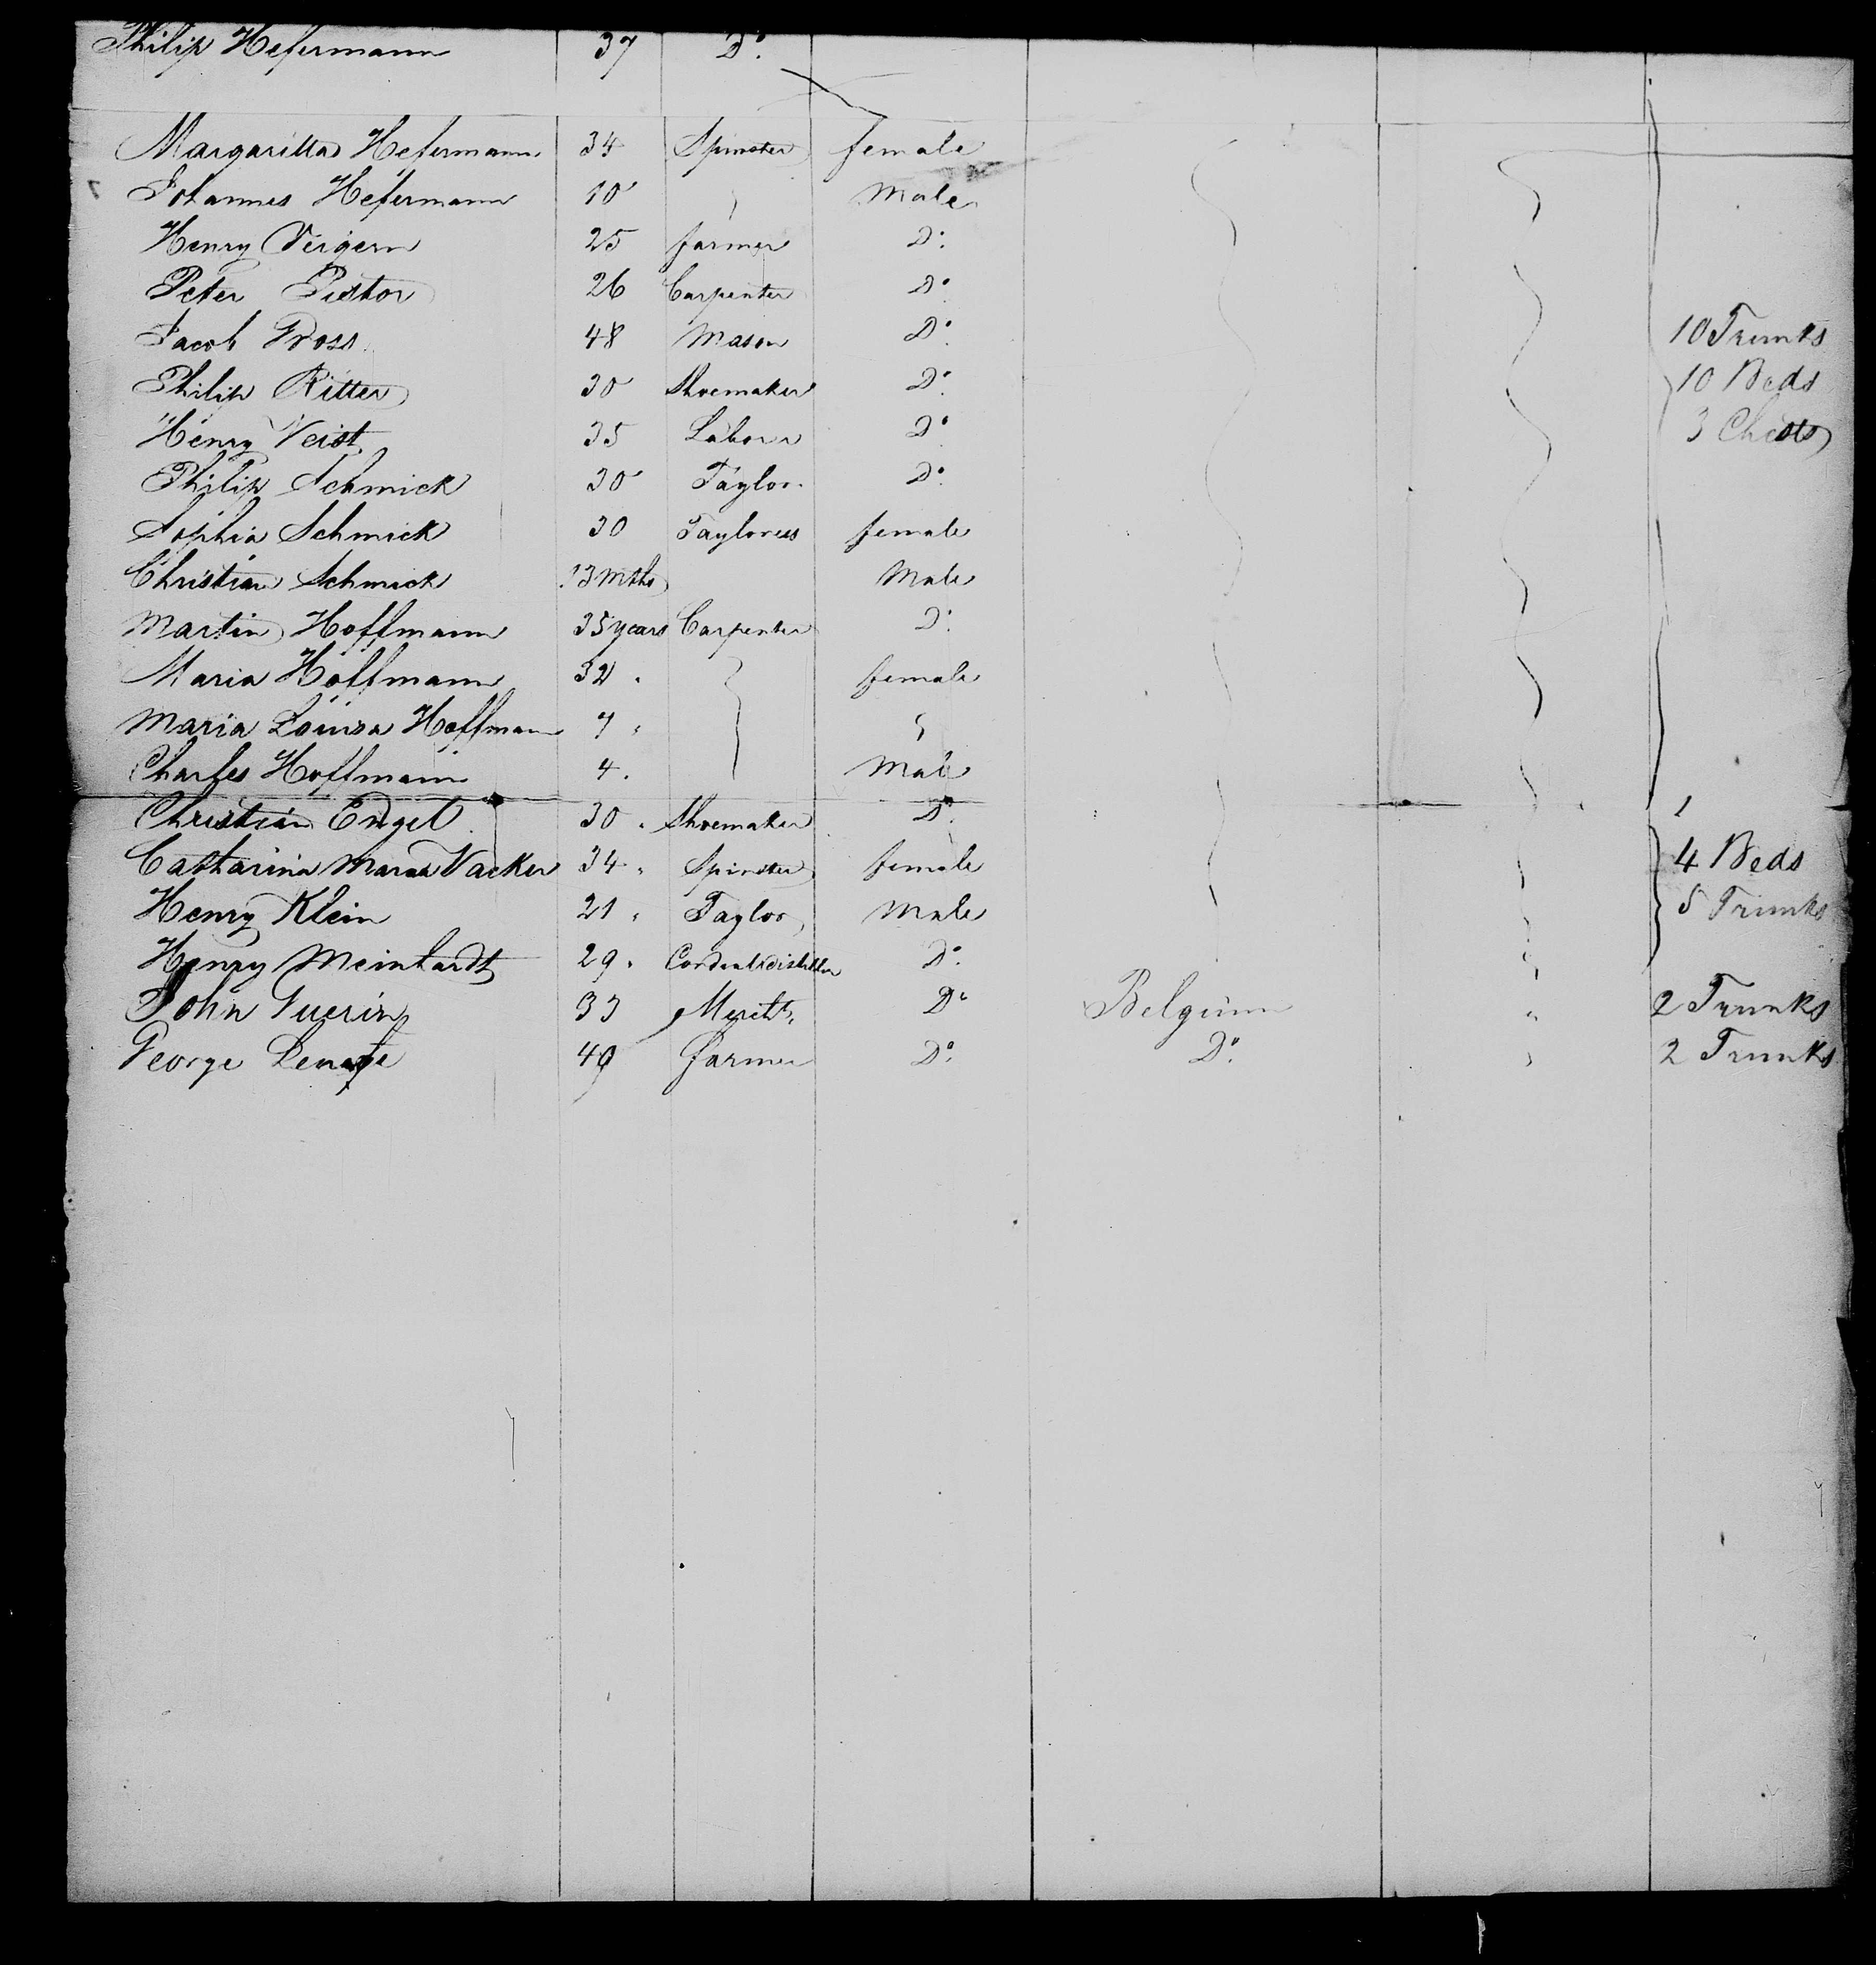 Philip Hefermann 37 Do.
Margaritta Hefermann 34 Spinster female
Johannes Hefermann 10 Male
Henry 25 farmer Do.
Peter Pistor 26 Carpenter Do.
Jacob Gross 48 Mason Do. 10 Trunks
Philip Ritter 30 Shoemaker Do. 10 Beds
Henry Veist 35 Laborer Do. 3 Chests
Philip Schmick 30 Taylor Do.
Sophia Schmick 30 Tayloress female
Christian Schmick 13 mths Male
Martin Hoffmann 35 years Carpenter Do.
Maria Hoffmann 32 " female
Maria Louisa Hoffmann 7 " "
Charles Hoffmann 4 " Male
Christian Engel 30 " Shoemaker Do.
Catharina Maria Vacker 34 " Spinster female 4 Beds
Henry Klein 21 " Taylor Male 5 Trunks
Henry Meinhardt 29 " Do.
John Guerin 33 Mercht. Do. Belgium " 2 Trunks
George 49 farmer Do. Do. " 2 Trunks